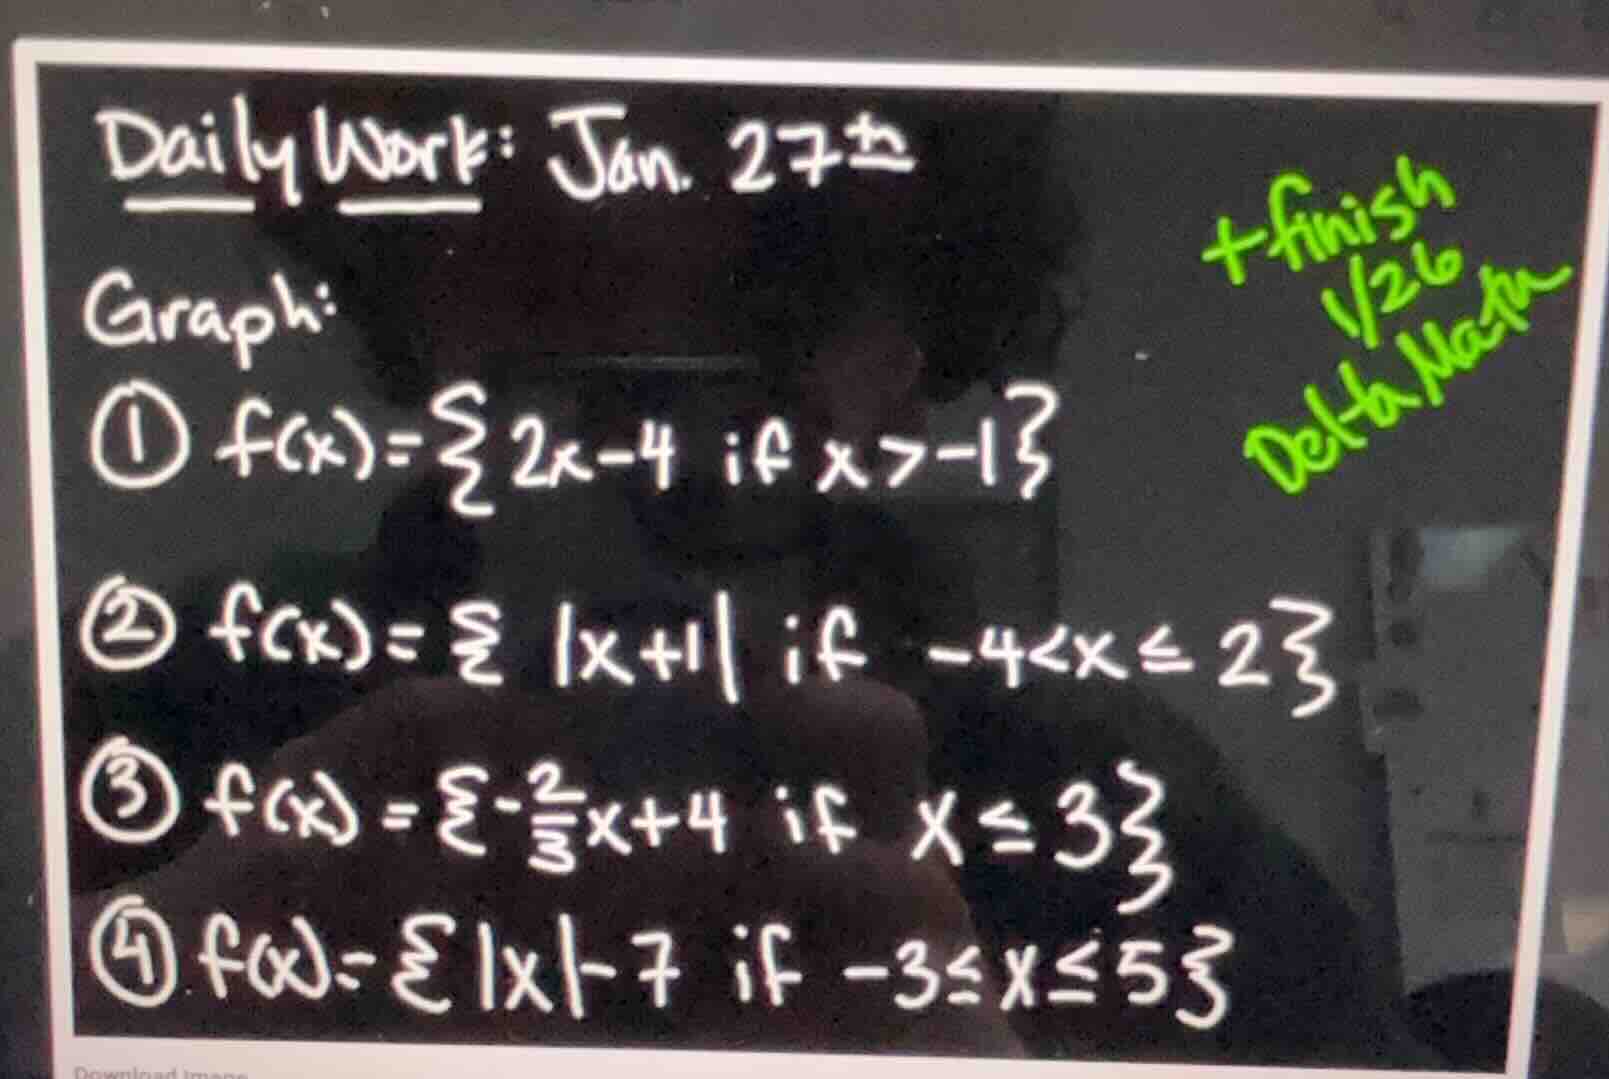 Daily Work: Jan. 27th
+ finish
1/26
Delta Math
Graph:
① f(x)={2x-4 if x>-1}
② f(x)={ |x+1| if -4<x≤2}
③ f(x)={-2/3x+4 if x≤3}
④ f(x)={|x|-7 if -3≤x≤5}
Download Image